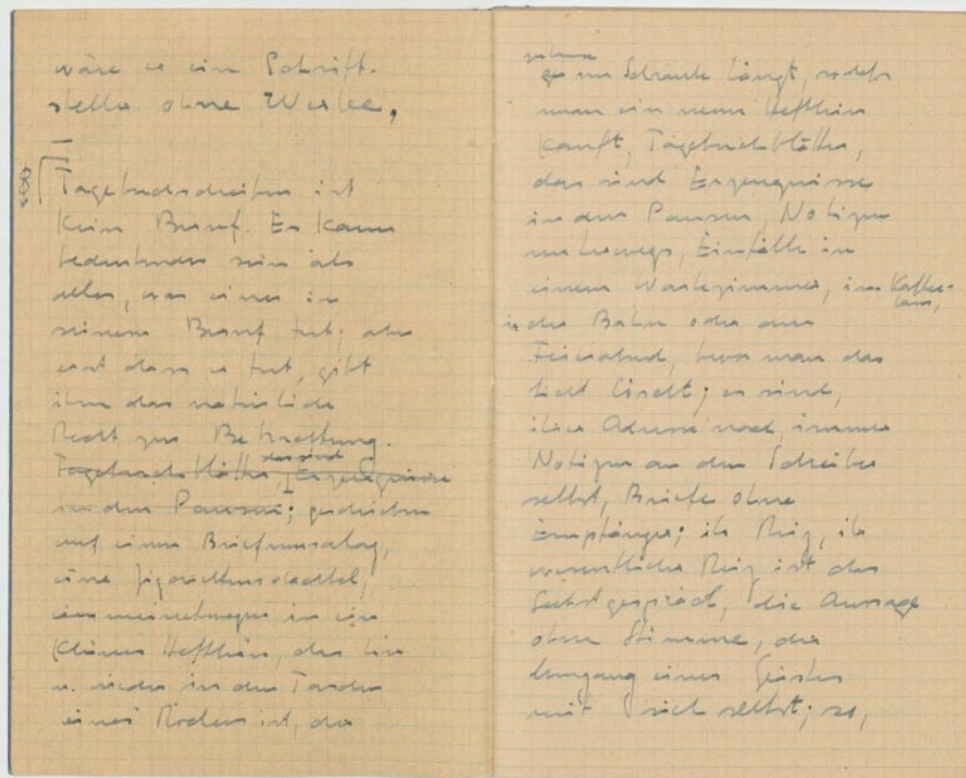 wäre es ein Schrift-
steller ohne Werke,
—
Tagebuchschreiben ist
kein Beruf. Es kann
bedeutender sein als
alles, was einer in
seinem Beruf tut; aber
erst dass er tut, gibt
ihm das natürliche
Recht zur Betrachtung.
Tagebuchblätter, das sind Erzeugnisse
in den Pausen; geschrieben
auf einen Briefumschlag,
eine Zigarettenschachtel,
meinetwegen in ein
kleines Heftlein, das hin
u. wieder in den Taschen
eines Rockes ist, der
zuhause
im Schranke hängt, sodass
man ein neues Heftlein
kauft, Tagebuchblätter,
das sind Erzeugnisse
in den Pausen, Notizen
unterwegs, Einfälle in
einem Wartezimmer, im Kaffee-
haus,
in der Bahn oder am
Feierabend, bevor man das
Licht löscht; es sind,
ihrer Adresse nach, immer
Notizen an den Schreiber
selbst, Briefe ohne
Empfänger; ihr Reiz, ihr
wesentlicher Reiz ist das
Selbstgespräch, die Aussage
ohne Stimme, der
Umgang eines Geistes
mit sich selbst; so,